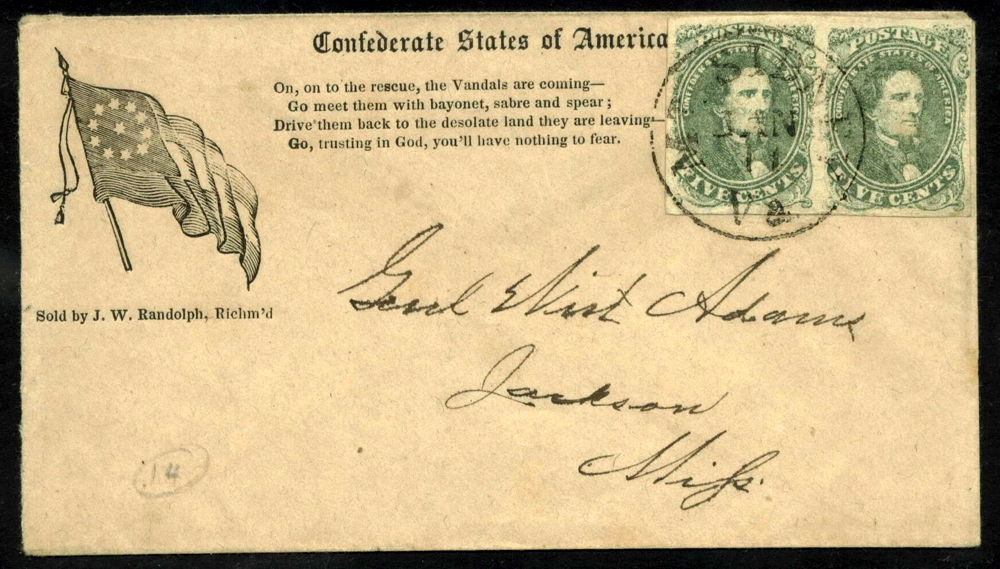 Confederate States of America
On, on to the rescue, the Vandals are coming—
Go meet them with bayonet, sabre and spear;
Drive them back to the desolate land they are leaving—
Go, trusting in God, you'll have nothing to fear.
Sold by J. W. Randolph, Richm'd
POSTAGE
CONFEDERATE STATES OF AMERICA
FIVE CENTS
POSTAGE
CONFEDERATE STATES OF AMERICA
FIVE CENTS
JAN
11
Va
Genl Wirt Adams
Jackson
Miss.
14